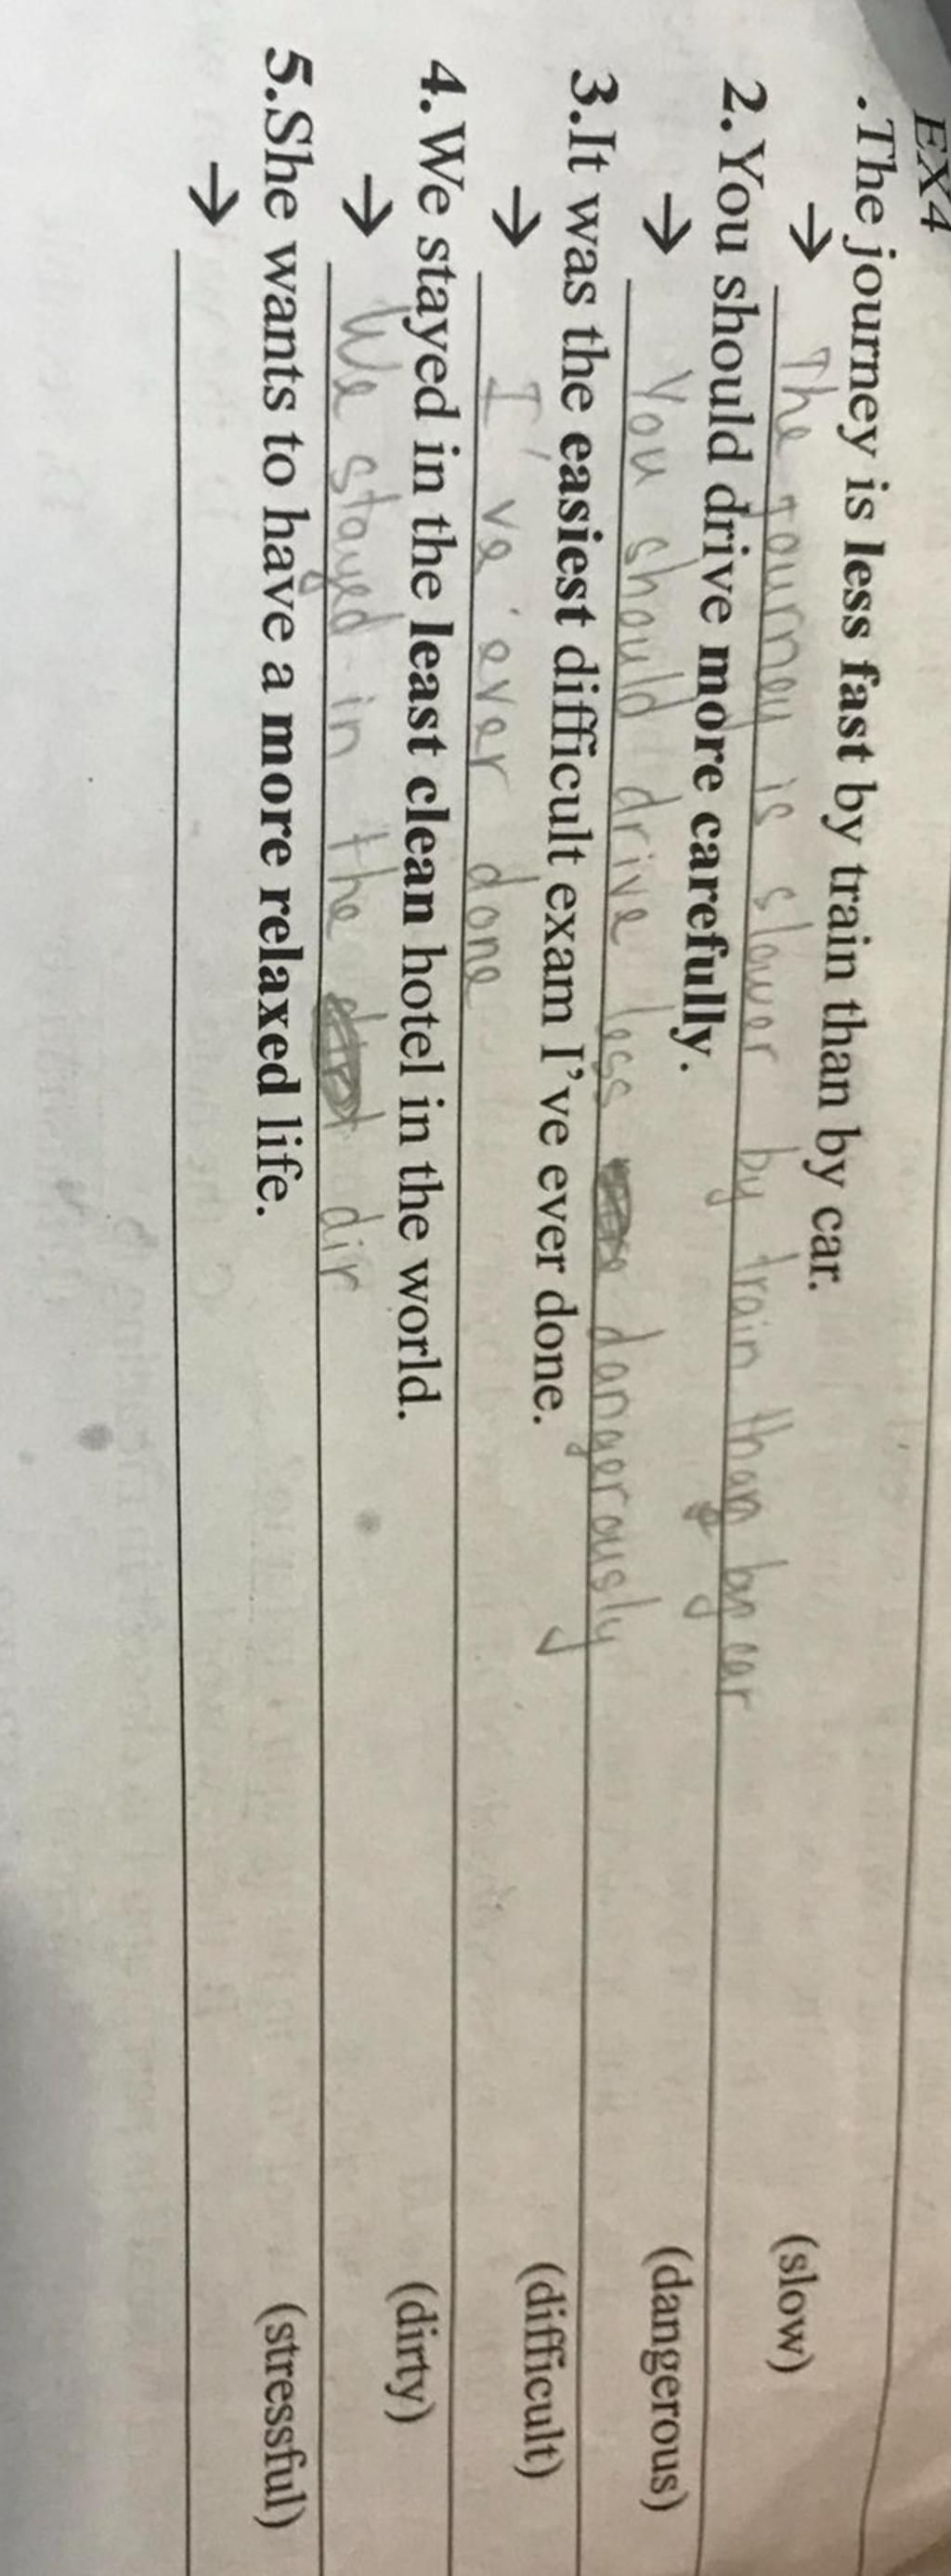 EX4
.The journey is less fast by train than by car. (slow)
→ The journey is slower by train than by car
2.You should drive more carefully. (dangerous)
→ You should drive less dangerously
3.It was the easiest difficult exam I've ever done. (difficult)
→ I've ever done
4.We stayed in the least clean hotel in the world. (dirty)
→ We stayed in the dir
5.She wants to have a more relaxed life. (stressful)
→